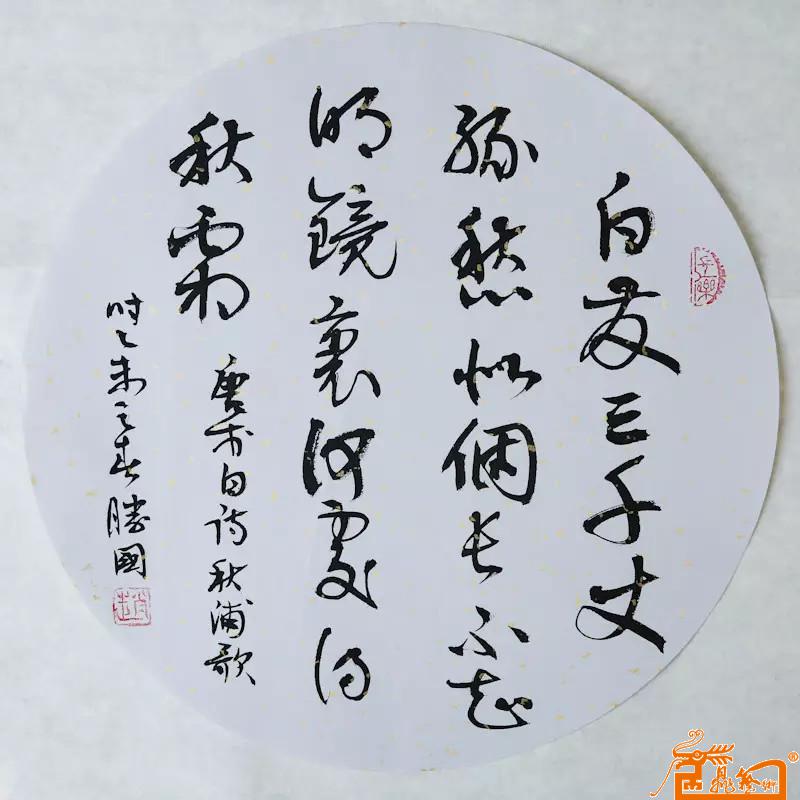 白发三千丈
缘愁似個长不知
明镜裏何處得
秋霜
唐李白诗秋浦歌
时乙未之春勝國